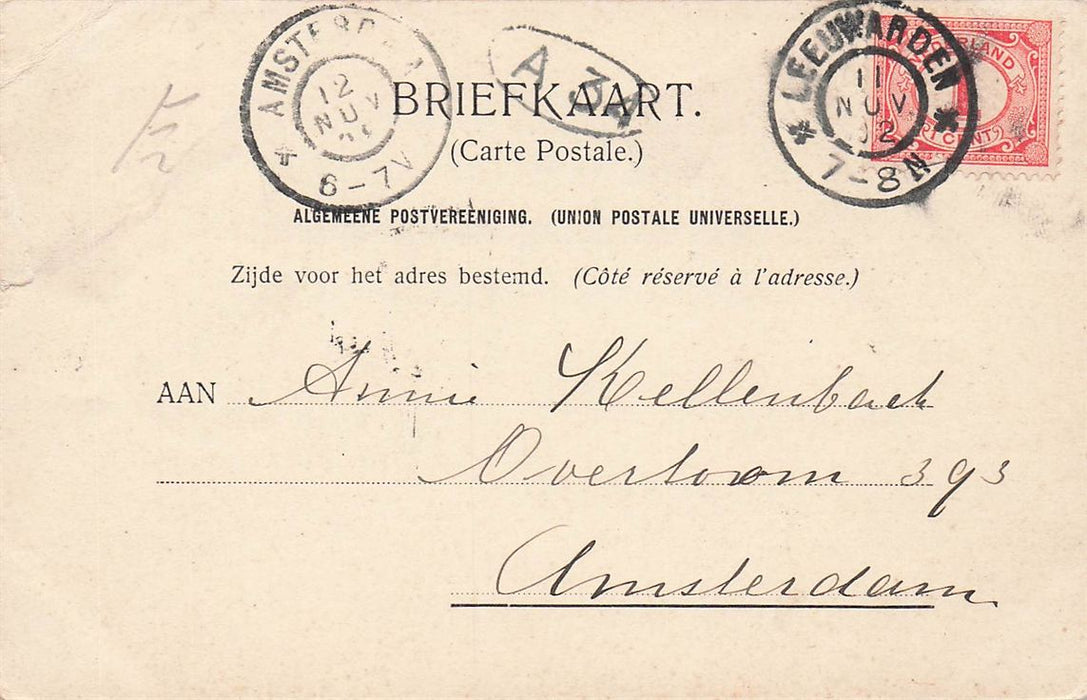 AMSTERDAM
12
NOV
6-7V
A 3
LEEUWARDEN
11
NOV
02
7-8N
NEDERLAND
1 CENT
BRIEFKAART.
(Carte Postale.)
ALGEMEENE POSTVEREENIGING. (UNION POSTALE UNIVERSELLE.)
Zijde voor het adres bestemd. (Côté réservé à l'adresse.)
AAN Annie Kellenbach
Overtoom 393
Amsterdam